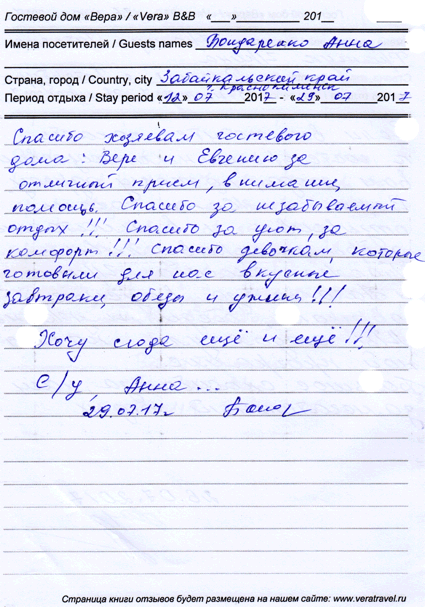 Гостевой дом «Вера» / «Vera» B&B «___»__________ 201__ ____
Имена посетителей / Guests names Бондаренко Анна
Страна, город / Country, city Забайкальский край
г. Краснокаменск
Период отдыха / Stay period «12» 07 2017 - «29» 07 2017
Спасибо хозяевам гостевого
дома: Вере и Евгению за
отличный прием, внимание,
помощь. Спасибо за незабываемый
отдых!!! Спасибо за уют, за
комфорт!!! Спасибо девочкам, которые
готовили для нас вкусные
завтраки, обеды и ужины!!!
Хочу сюда ещё и ещё!!!
С/у, Анна...
29.07.17г.
Страница книги отзывов будет размещена на нашем сайте: www.veratravel.ru